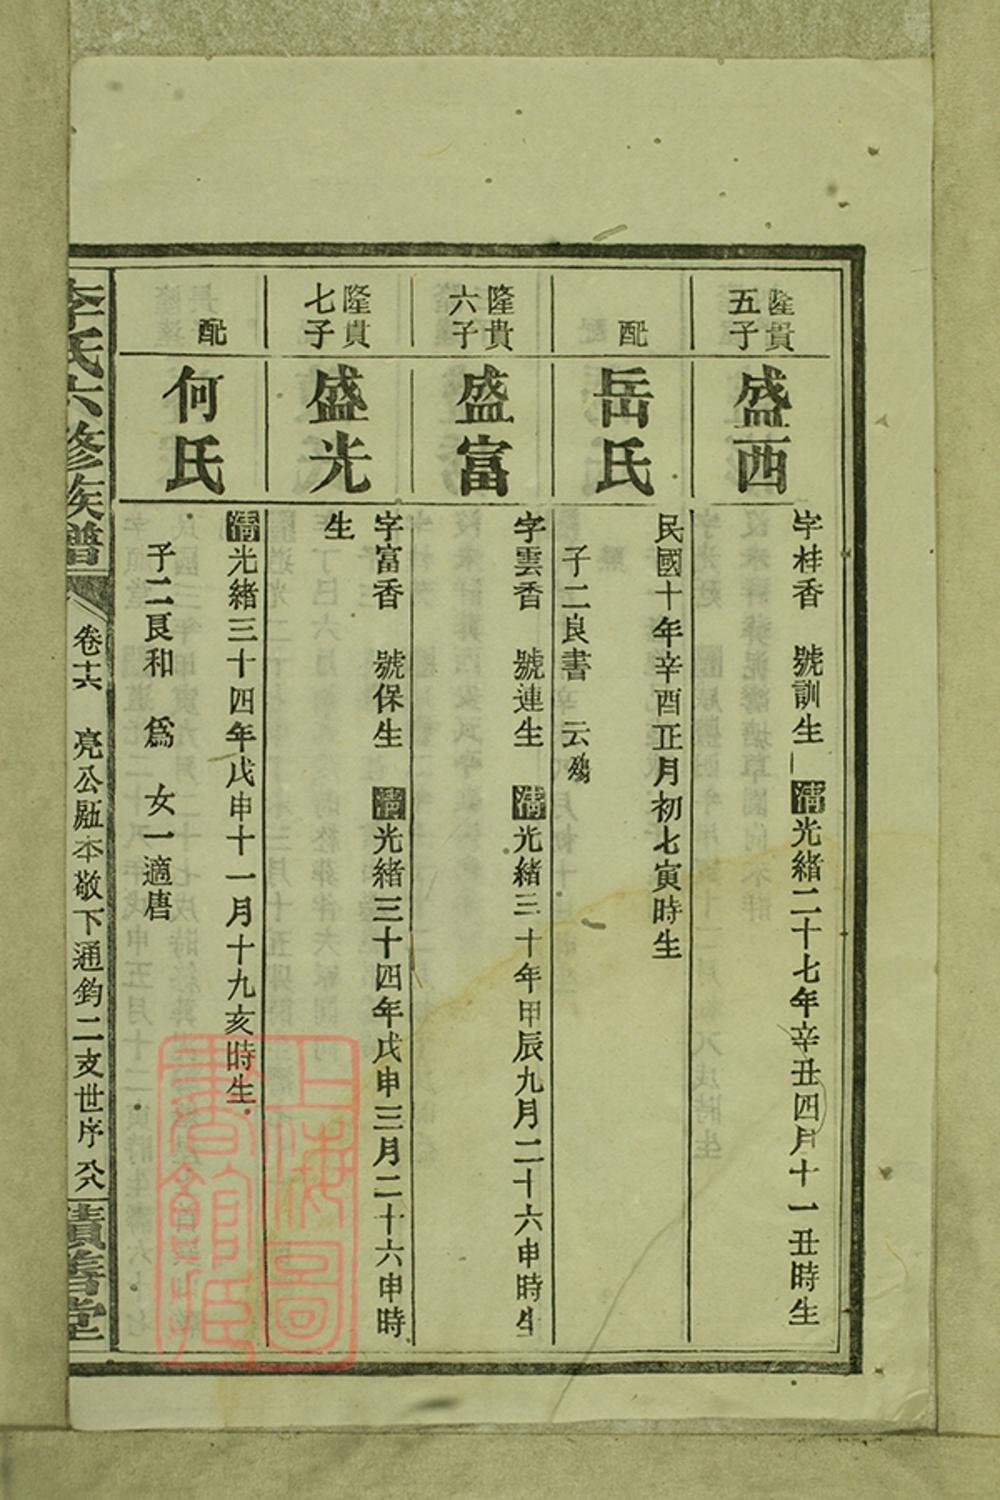 隆貴
五子
盛西
字桂香　號訓生　清光緒二十七年辛丑四月十一丑時生
配
岳氏
民國十年辛酉正月初七寅時生
子二良書　云殤
隆貴
六子
盛富
字雲香　號連生　清光緒三十年甲辰九月二十六申時生
隆貴
七子
盛光
字富香　號保生　清光緒三十四年戊申三月二十六申時
生
配
何氏
清光緒三十四年戊申十一月十九亥時生
子二良和　為　女一適唐
李氏六修族譜
卷十六　亮公房本敬下通鈞二支世序
積善堂
上海圖
書館藏